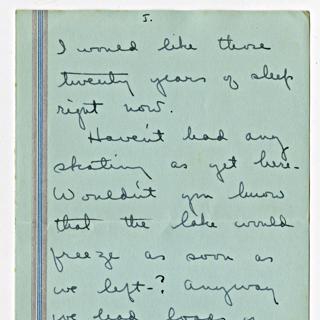 5.
I would like those
twenty years of sleep
right now.
Haven't had any
skating as yet here.
Wouldn't you know
that the lake would
freeze as soon as
we left-? Anyway
we had loads